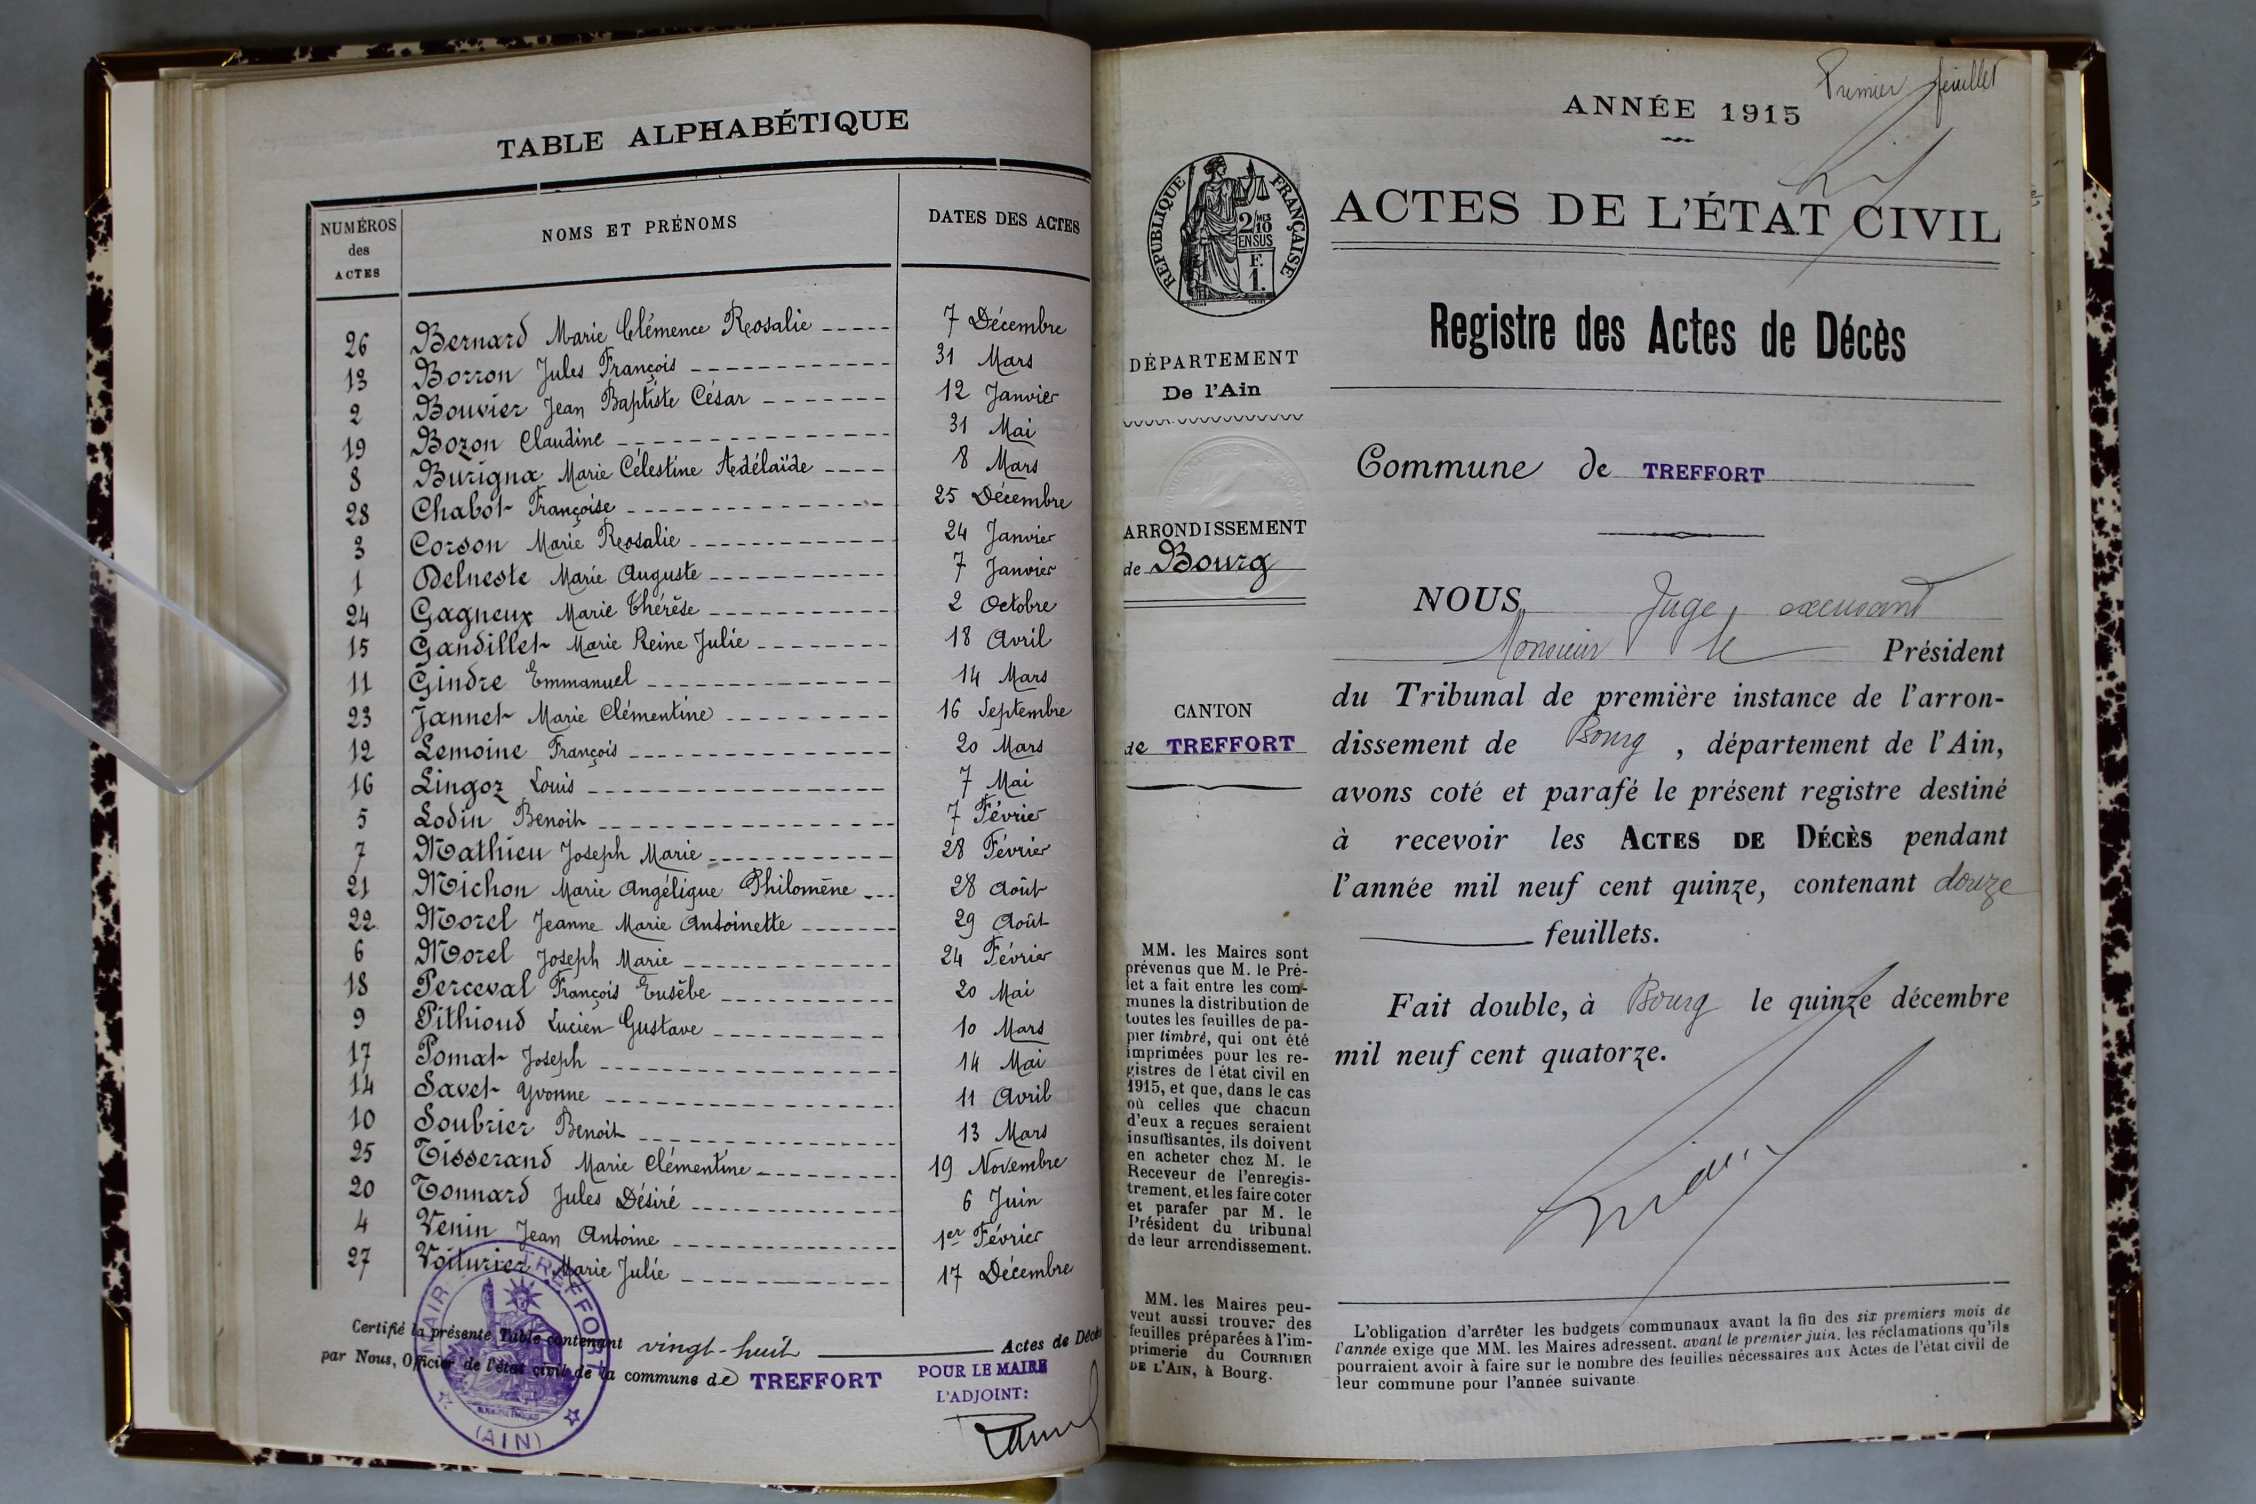 TABLE ALPHABÉTIQUE
NUMÉROS des ACTES NOMS ET PRÉNOMS DATES DES ACTES
26 Bernard Marie Clémence Rosalie 7 Décembre
13 Borron Jules François 31 Mars
2 Bouvier Jean Baptiste César 12 Janvier
19 Bozon Claudine 31 Mai
8 Burignx Marie Célestine Adélaïde 8 Mars
28 Chabot Françoise 25 Décembre
3 Corson Marie Rosalie 24 Janvier
1 Delneste Marie Auguste 7 Janvier
24 Gagneux Marie Thérèse 2 Octobre
15 Gandillet Marie Reine Julie 18 Avril
11 Gindre Emmanuel 14 Mars
23 Jannet Marie Clémentine 16 Septembre
12 Lemoine François 20 Mars
16 Lingoz Louis 7 Mai
5 Lodin Benoit 7 Février
7 Mathieu Joseph Marie 28 Février
21 Michon Marie Angélique Philomène 28 Août
22 Morel Jeanne Marie Antoinette 29 Août
6 Morel Joseph Marie 24 Février
18 Perceval François Eusèbe 20 Mai
9 Pithioud Lucien Gustave 10 Mars
17 Pomat Joseph 14 Mai
14 Savet Yvonne 11 Avril
10 Soubrier Benoit 13 Mars
25 Tisserand Marie Clémentine 19 Novembre
20 Tonnard Jules Désiré 6 Juin
4 Venin Jean Antoine 1er Février
27 Voiturier Marie Julie 17 Décembre
Certifié la présente Table contenant vingt-huit Actes de Décès
par Nous, Officier de l'état civil de la commune de TREFFORT
POUR LE MAIRE
L'ADJOINT:
MAIRIE TREFFORT
(AIN)
Premier feuillet
ANNÉE 1915
RÉPUBLIQUE FRANÇAISE
2/10 MES
EN SUS
F.
1.
ACTES DE L'ÉTAT CIVIL
Registre des Actes de Décès
DÉPARTEMENT
De l'Ain
ARRONDISSEMENT
de Bourg
CANTON
de TREFFORT
MM. les Maires sont
prévenus que M. le Pré-
fet a fait entre les com-
munes la distribution de
toutes les feuilles de pa-
pier timbré, qui ont été
imprimées pour les re-
gistres de l'état civil en
1915, et que, dans le cas
où celles que chacun
d'eux a reçues seraient
insuffisantes, ils doivent
en acheter chez M. le
Receveur de l'enregis-
trement, et les faire coter
et parafer par M. le
Président du tribunal
de leur arrondissement.
MM. les Maires peu-
vent aussi trouver des
feuilles préparées à l'im-
primerie du COURRIER
DE L'AIN, à Bourg.
Commune de TREFFORT
NOUS Juge, excusant
Monsieur le Président
du Tribunal de première instance de l'arron-
dissement de Bourg, département de l'Ain,
avons coté et parafé le présent registre destiné
à recevoir les ACTES DE DÉCÈS pendant
l'année mil neuf cent quinze, contenant douze
feuillets.
Fait double, à Bourg le quinze décembre
mil neuf cent quatorze.
L'obligation d'arrêter les budgets communaux avant la fin des six premiers mois de
l'année exige que MM. les Maires adressent, avant le premier juin, les réclamations qu'ils
pourraient avoir à faire sur le nombre des feuilles nécessaires aux Actes de l'état civil de
leur commune pour l'année suivante